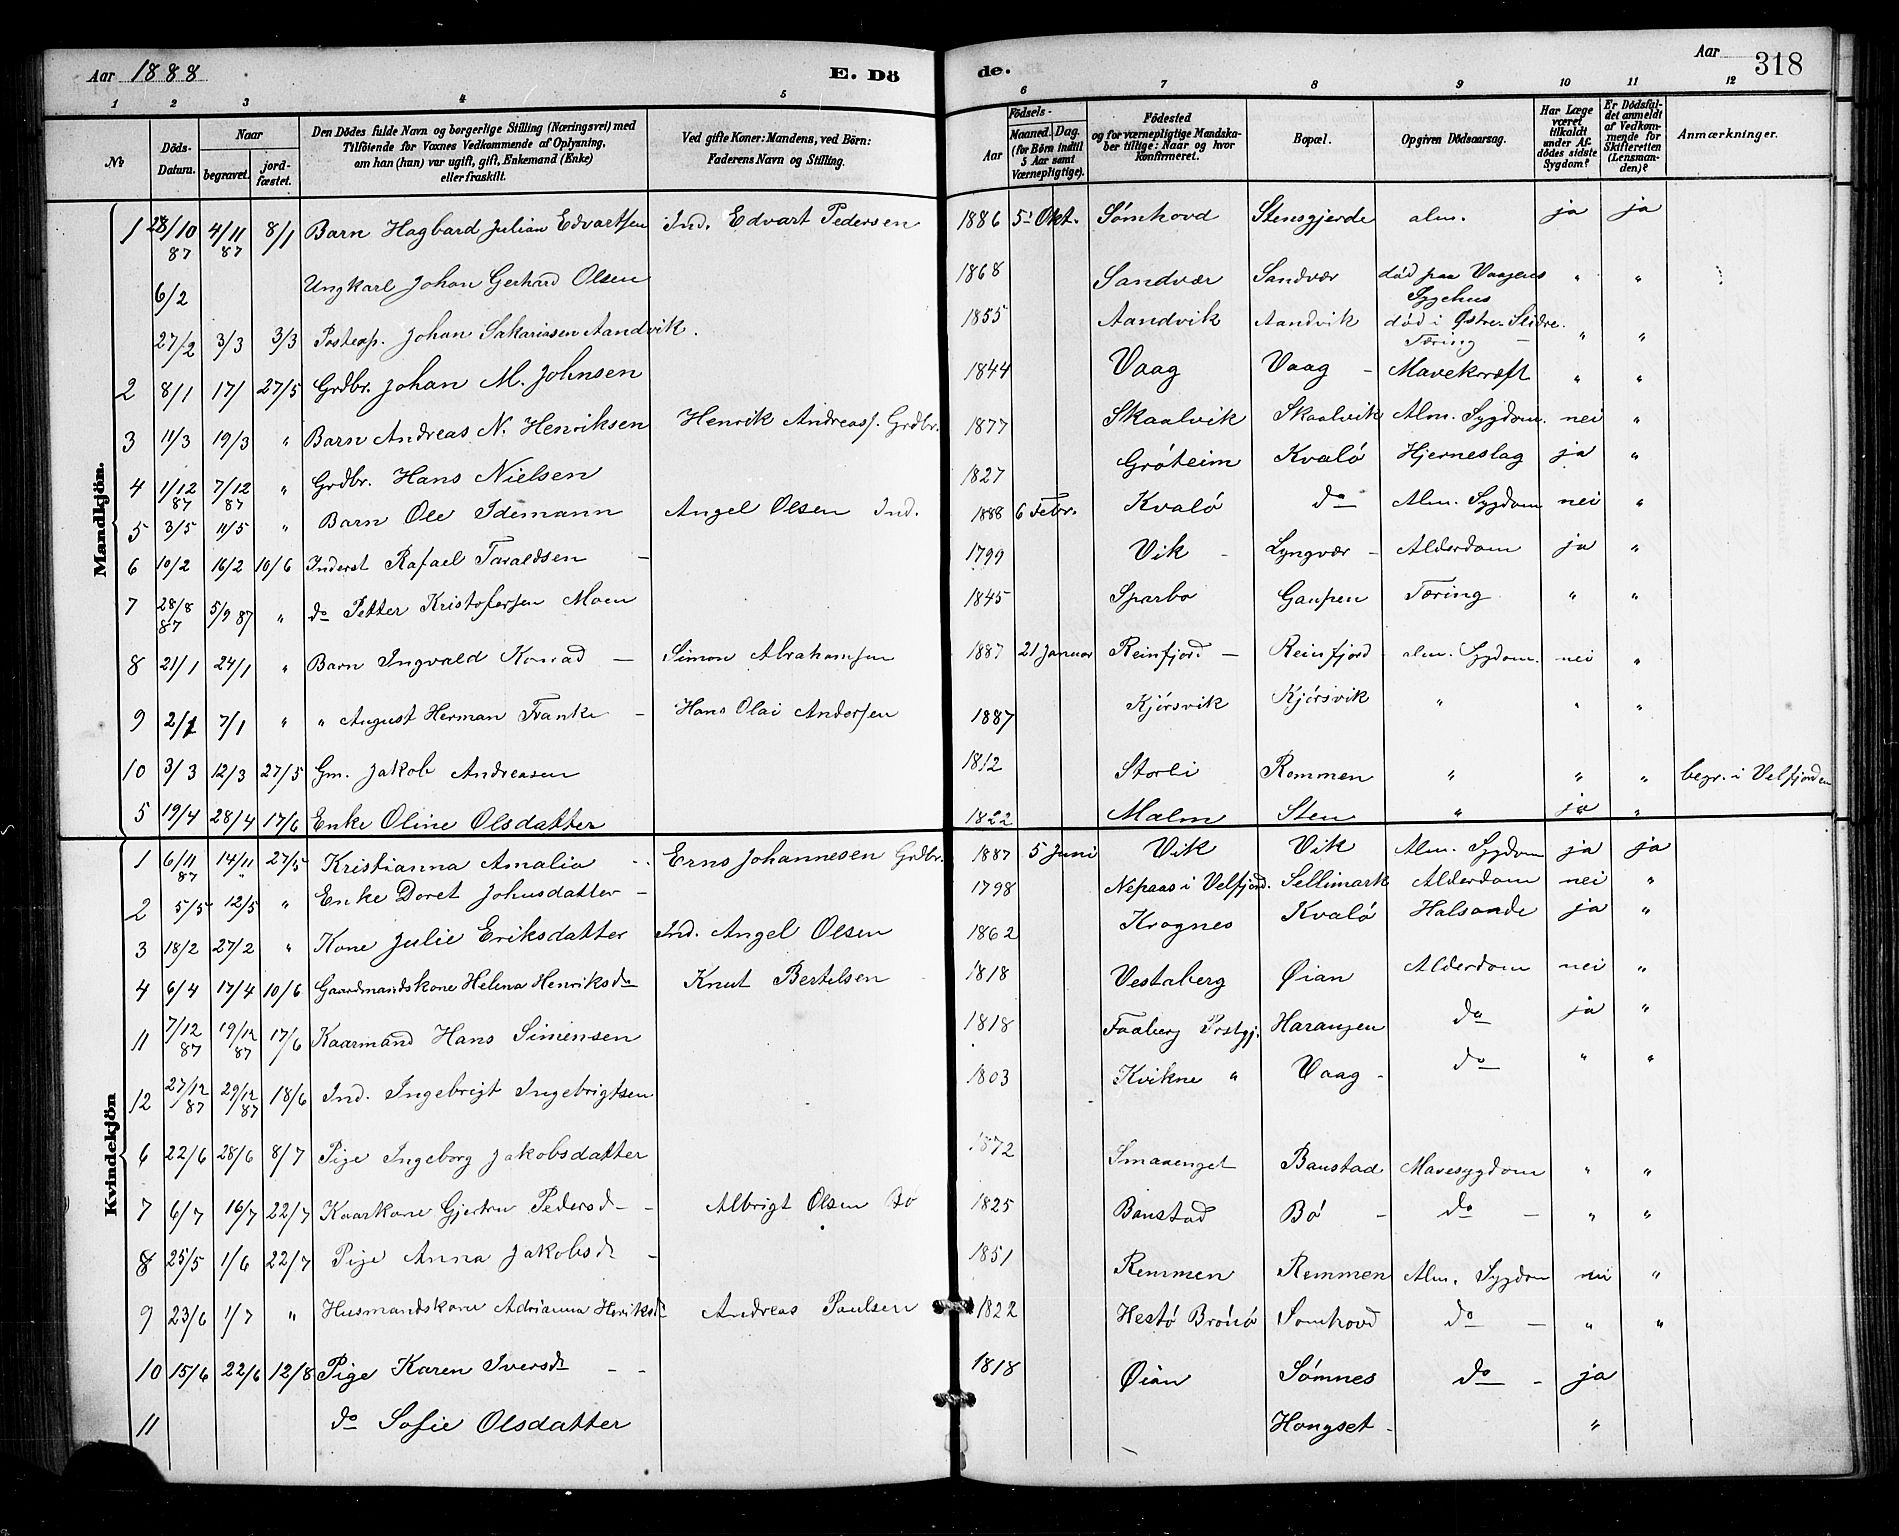 Aar 1888 E. Dö de. Aar 318
1 2 3 4 5 6 7 8 9 10 11 12
No
Döds-Datum.
Naar
begravet.
jordfæstet.
Den Dödes fulde Navn og borgerlige Stilling (Næringsvei) med
Tilföiende for Voxnes Vedkommende af Oplysning,
om han (hun) var ugift, gift, Enkemand (Enke)
eller fraskilt.
Ved gifte Koner: Mandens, ved Börn:
Faderens Navn og Stilling.
Födsels-
Aar
Maaned. Dag.
(for Börn indtil 5 Aar samt Værnepligtige).
Födested
og for værnepligtige Mandskaber tillige: Naar og hvor konfirmeret.
Bopæl.
Opgiven Dödsaarsag.
Har Læge været tilkaldt under Afdödes sidste Sygdom?
Er Dödsfaldet anmeldt af Vedkommende for Skifteretten (Lensmanden)?
Anmærkninger.
Mandkjön.
1 28/10 87 4/11 87 8/1 Barn Hagbard Julian Edvartsen Ind. Edvart Pedersen 1886 5 Okt. Sömhovd Stensgjerde alm. ja ja
6/2 Ungkarl Johan Gerhard Olsen 1868 Sandvær Sandvær död paa Vaagens Sygehus " "
27/2 3/3 3/3 Johan Sakariasen Aandvik. 1855 Aandvik Aandvik död i Østre Slidre. Tæring " "
2 8/1 17/ 27/5 Grdbr. Johan M. Johnsen 1844 Vaag Vaag - Mavekræft " "
3 11/3 19/3 " Barn Andreas N. Henriksen Henrik Andreass. Grdbr. 1877 Skaalvik Skaalvik Alm. Sygdom. nei "
4 1/12 87 7/12 87 " Grdbr. Hans Nielsen 1827 Gröteim Kvalö Hjerneslag ja "
5 3/5 11/5 " Barn Ole Idemann Angel Olsen Ind. 1888 6 Febr. Kvalö do Alm. Sygdom nei "
6 10/2 16/2 10/6 Inderst Rafael Taraldsen - 1799 Vik - Lyngvær - Alderdom ja "
7 28/8 87 5/9 87 " do Petter Kristofersen Moen 1845 Sparbo Gaupen Tæring " "
8 21/1 24/1 " Barn Ingvald Konrad - Simon Abrahamsen 1887 21 Januar Reinfjord - Reinfjord alm. Sygdom. nei "
9 2/1 7/1 " " August Herman Franke - Hans Olai Andersen 1887 Kjörsvik Kjörsvik " " "
10 3/3 12/3 27/5 Gm. Jakob Andreasen 1812 Storli Remmen " " " begr. i Velfjorden
5 19/4 28/4 17/6 Enke Oline Olsdatter 1822 Malm Sten " ja "
Kvindekjön
1 6/11 87 14/11 " 27/5 Kristianna Amalia Erns Johannesen Grdbr. 1887 5 Juni Vik Vik Alm. Sygdom ja ja
2 5/5 12/5 " Enke Doret Johnsdatter - 1798 Nepaas i Velfjord. Sellimark Alderdom nei "
3 18/2 27/2 " Kone Julie Eriksdatter Ind. Angel Olsen 1862 Krognes Kvalö Halsonde ja "
4 6/4 17/4 10/6 Gaardmandskone Helena Henriksdr Knut Bertelsen 1818 Vestaberg Øian Alderdom nei "
11 7/12 87 19/12 87 17/6 Kaarmand Hans Simensen 1818 Faaberg Prstgj. Harangen do ja "
12 27/12 87 29/12 87 18/6 Ind. Ingebrigt Ingebrigtsen 1803 Kvikne " Vaag - do " "
6 22/6 28/6 8/7 Pige Ingeborg Jakobsdatter 1872 Smaaenget Baustad Mavesygdom " "
7 6/7 16/7 22/7 Kaarkone Gjertru Pedersd - - Albrigt Olsen Bö 1825 Baustad Bö - do - " "
8 25/5 1/6 22/7 Pige Anna Jakobsdr - 1851 Remmen Remmen Alm. Sygdom nei "
9 23/6 1/7 " Husmandskone Adrianna Henriksdr Andreas Paulsen 1822 Hestö Brönö Somhovd do - " "
10 15/6 22/6 12/8 Pige Karen Iversdr - - 1818 Øian Sömnes do - ja
11 do Sofie Olsdatter Hongset - "